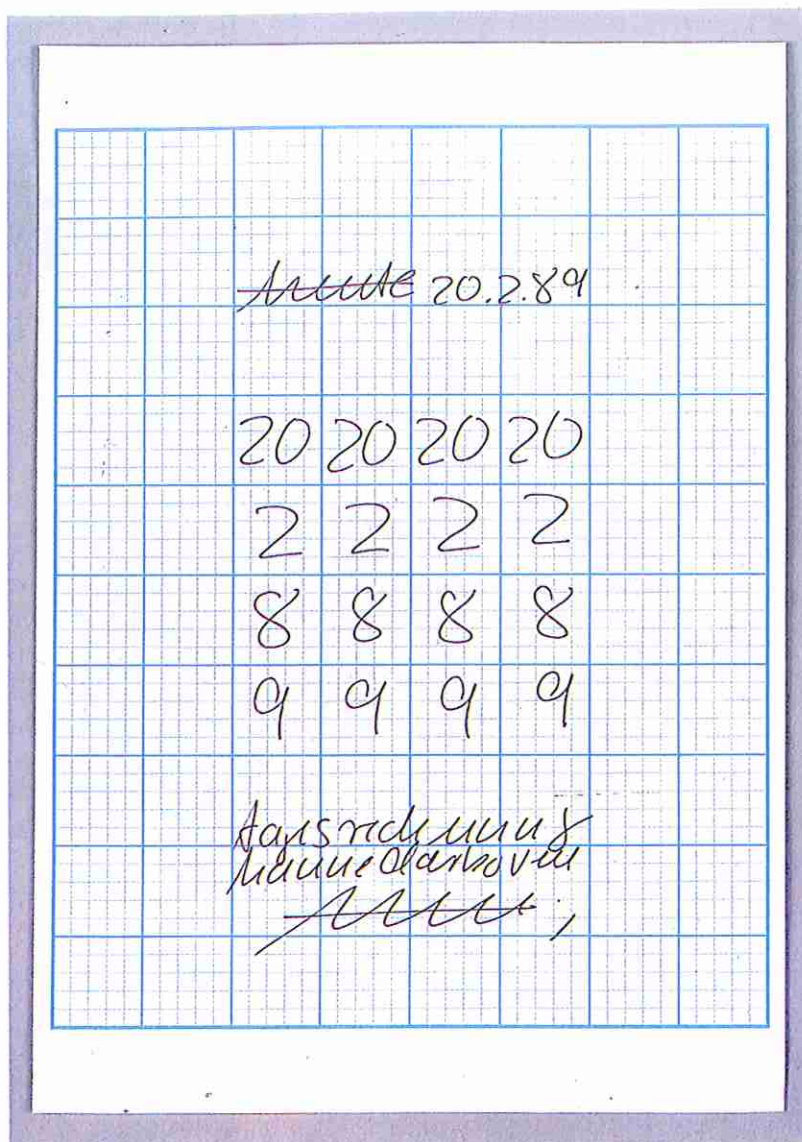 heute 20.2.89
20 20 20 20
2 2 2 2
8 8 8 8
9 9 9 9
tagesrechnung
hanne darboven